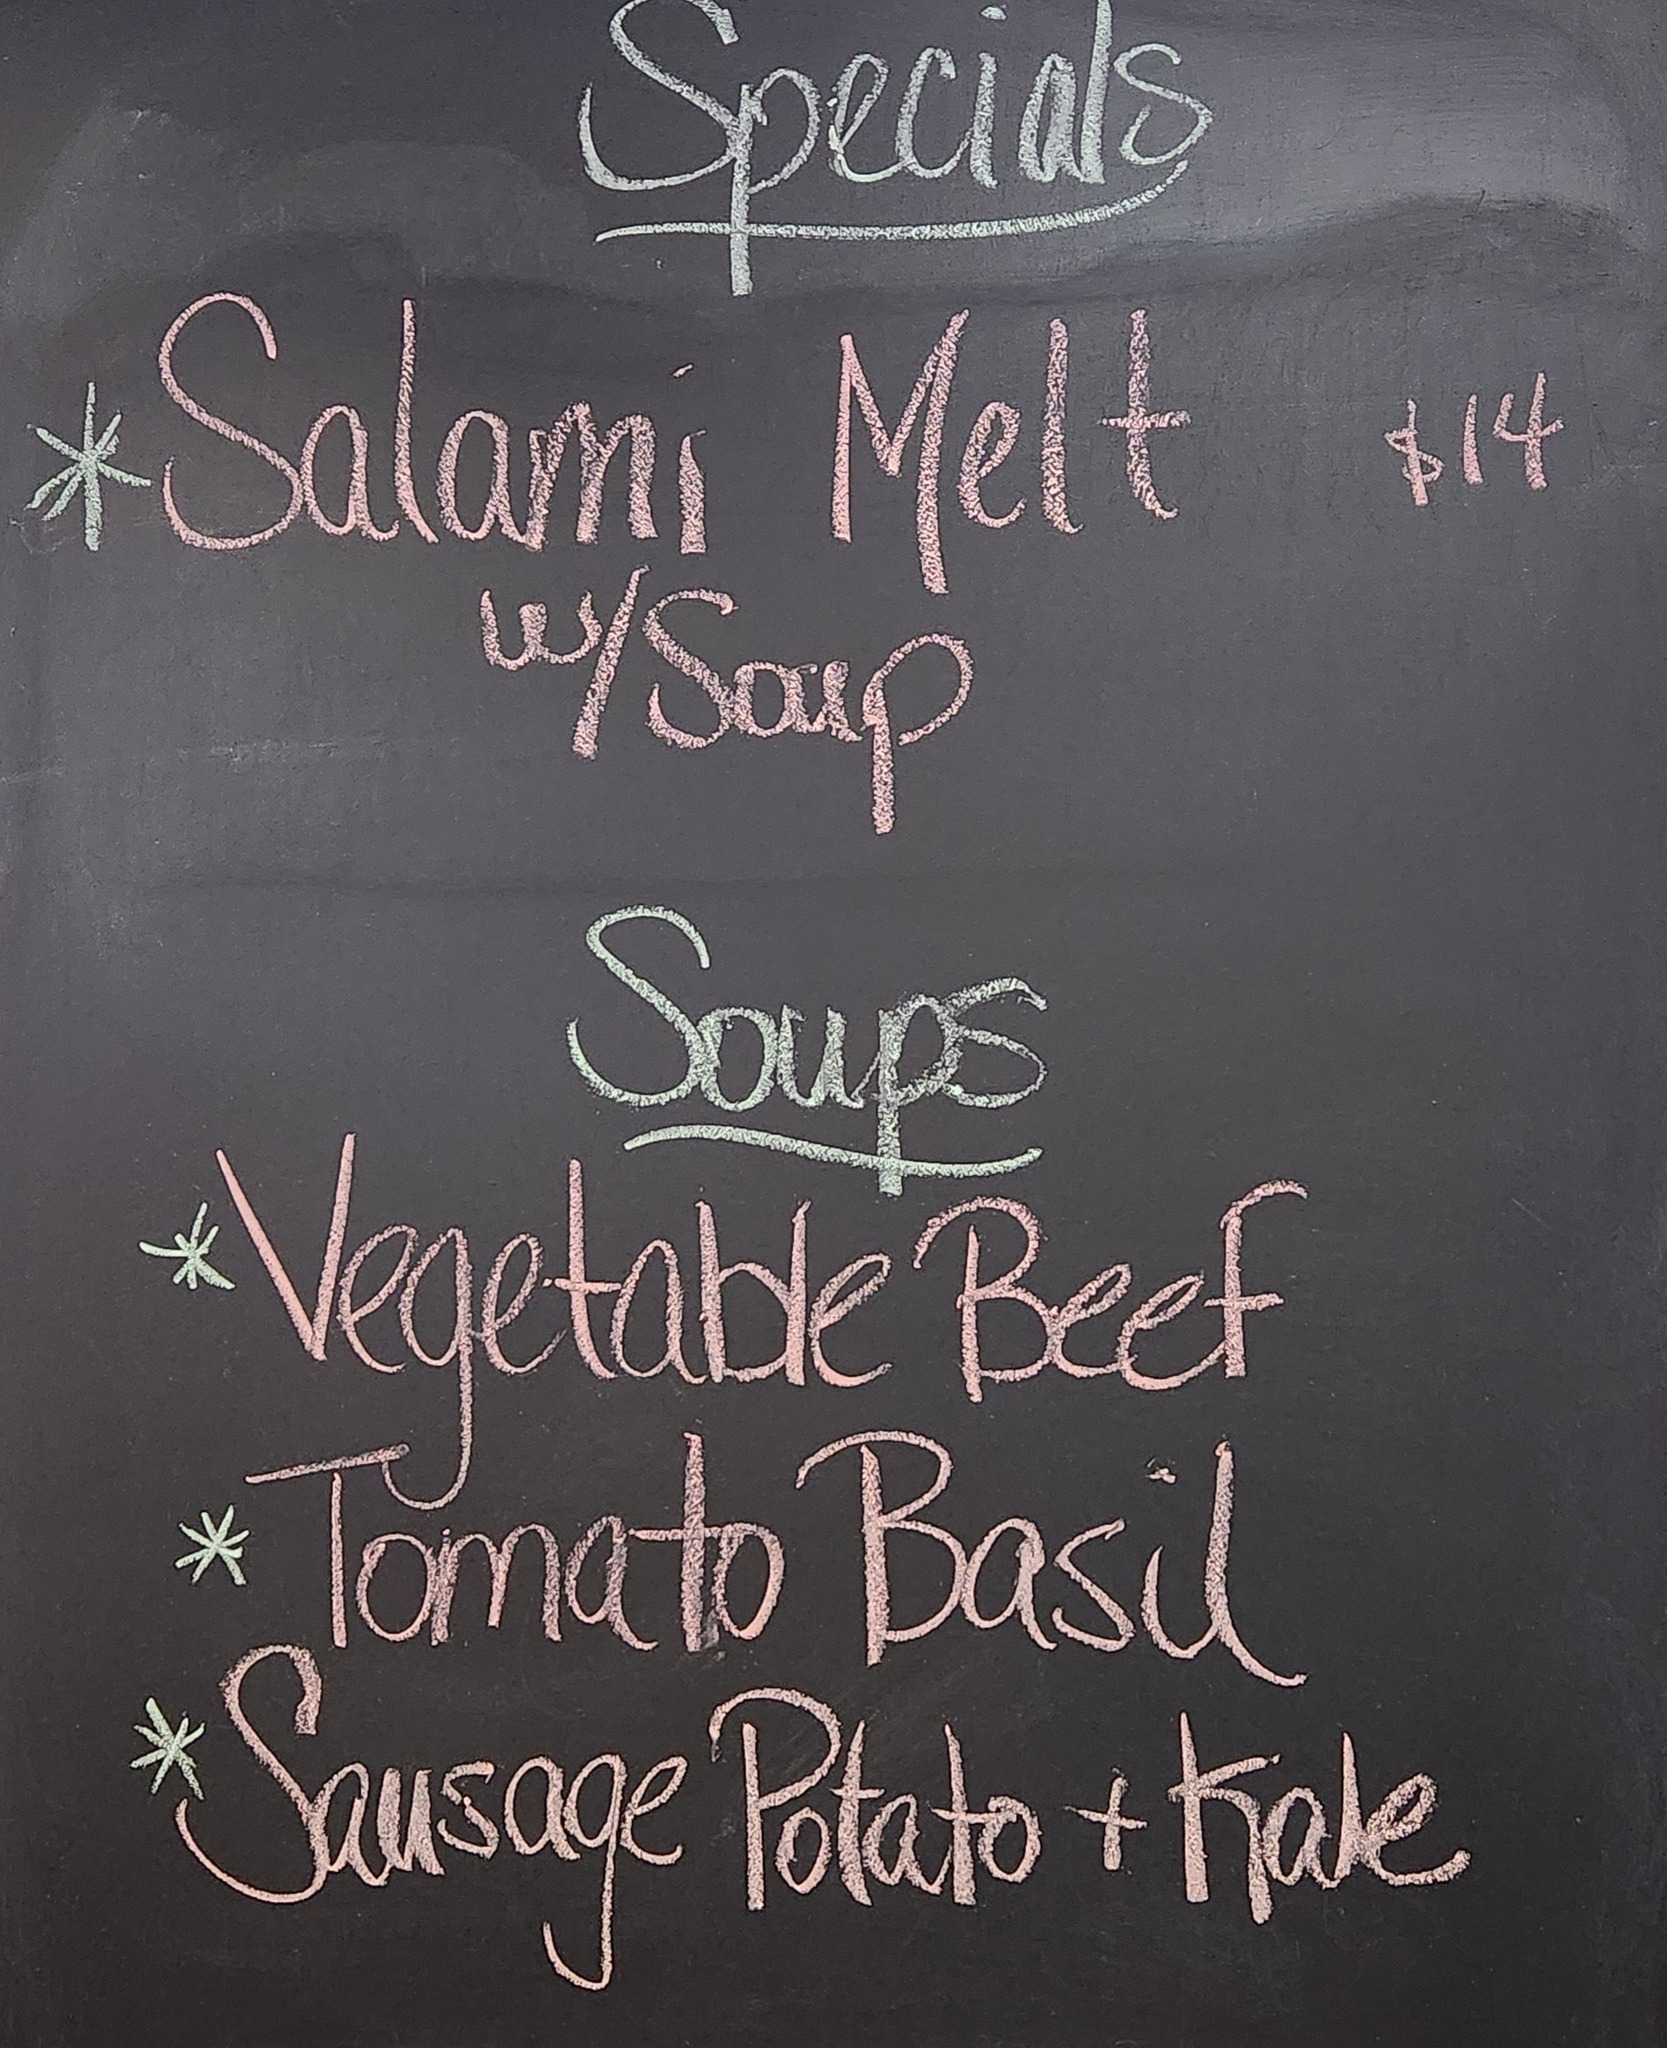 Specials
* Salami Melt $14
w/Soup
Soups
* Vegetable Beef
* Tomato Basil
* Sausage Potato + Kale